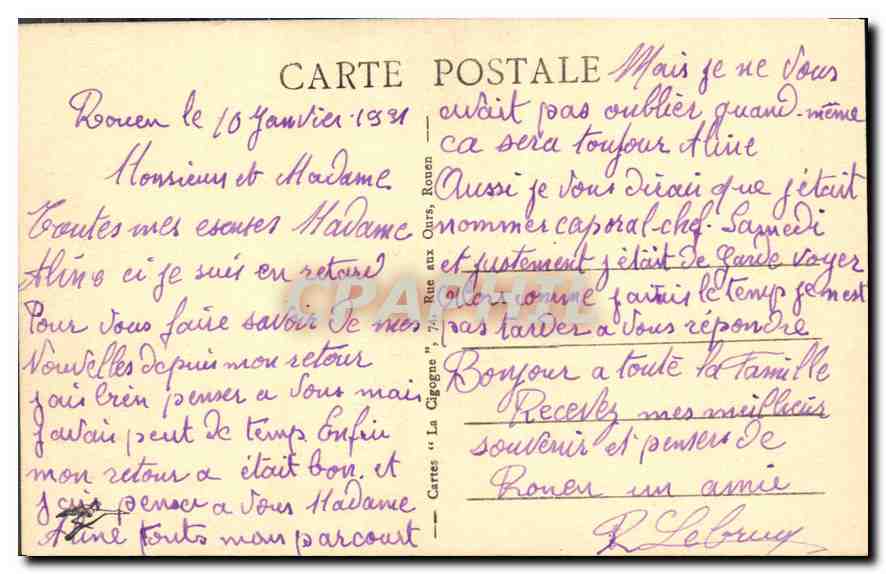 CARTE POSTALE
Rouen le 10 Janvier 1931
Monsieur et Madame
Toutes mes escuses Madame
Aline ci je suis en retard
Pour vous faire savoir de mes
Nouvelles depuis mon retour
jais bien penser a vous mais
javais peut de temp Enfin
mon retour a était bon. et
jais penser a vous Madame
Aline touts mon parcourt
Cartes "La Cigogne", 74, Rue aux Ours, Rouen
Mais je ne vous
avait pas oublier quand-même
ca sera toujour Aline
Aussi je vous dirai que j'était
nommer caporal-chef. Samedi
et justement j'était de garde voyer
alors comme jamis le temp je
pas tarder a vous répondre
Bonjour a toute la Famille
Recevez mes meilleur
souvenir et pensers de
Rouen un amie
R Lebruy
CPAPHIL